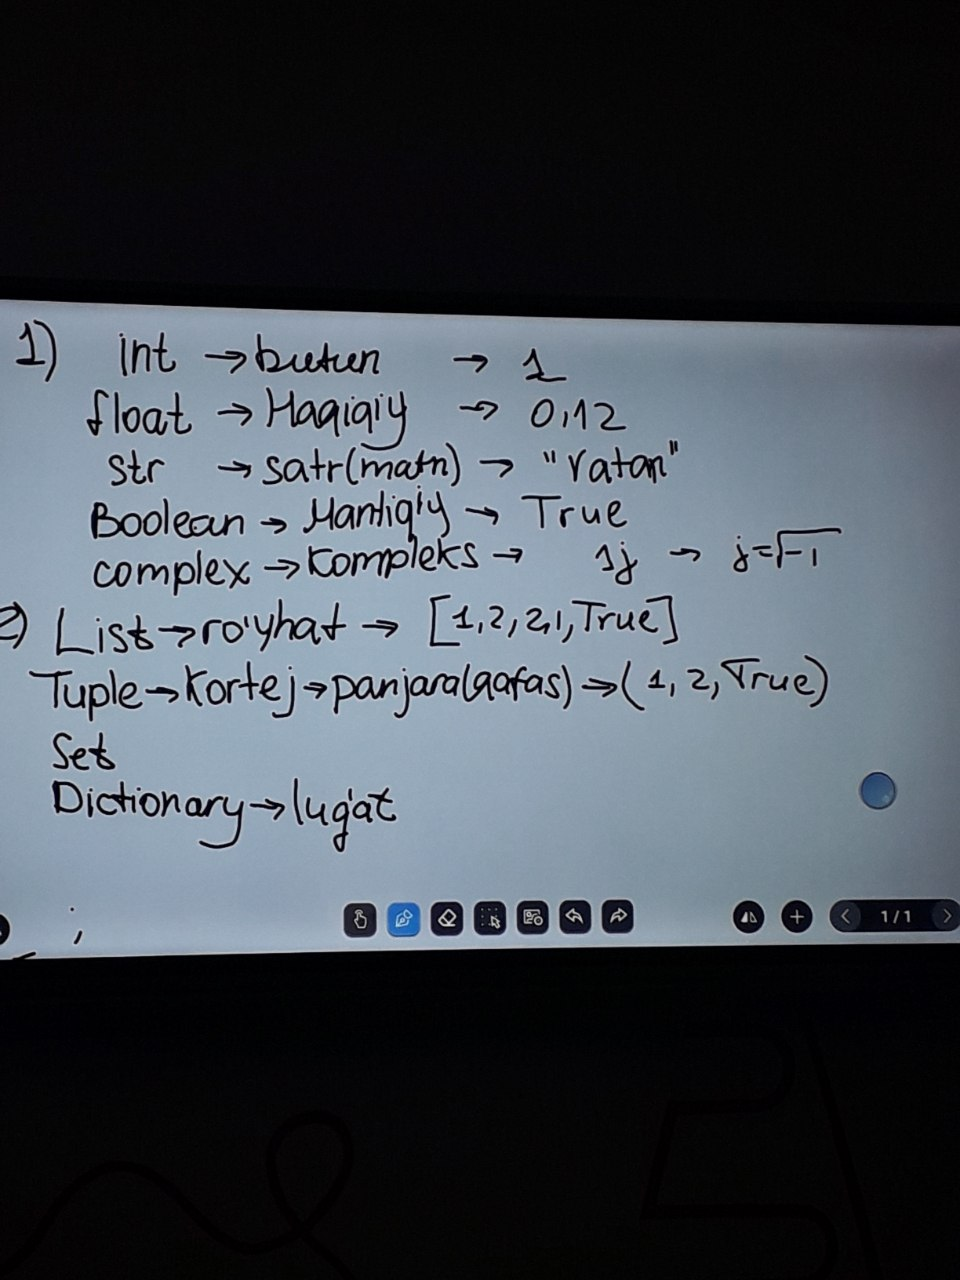 1) int → butun → 1
float → Haqiqiy → 0,12
str → satr(matn) → "Vatan"
Boolean → Mantiqiy → True
complex → Kompleks → 1j → j=√-1
2) List → ro'yhat → [1,2,2,1,True]
Tuple → Kortej → panjara(qafas) → (1, 2, True)
Set
Dictionary → lug'at
1/1